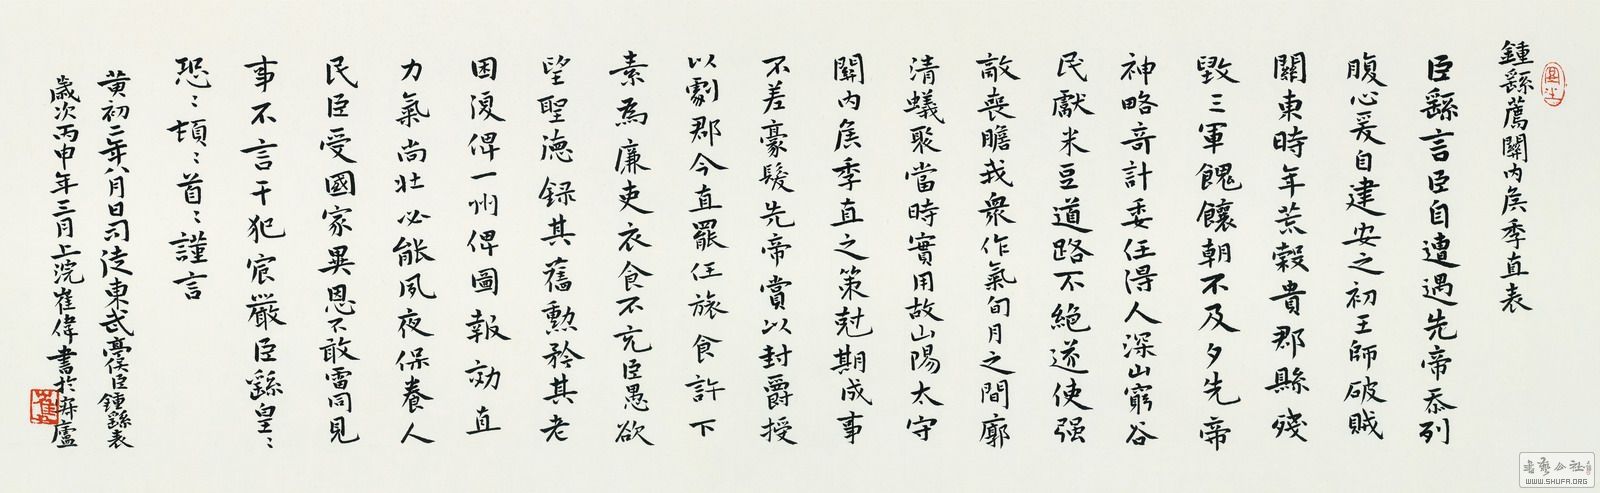 鍾繇薦關內侯季直表
臣繇言臣自遭遇先帝忝列
腹心爰自建安之初王師破賊
關東時年荒穀貴郡縣殘
毀三軍餽饟朝不及夕先帝
神略奇計委任得人深山窮谷
民獻米豆道路不絕遂使强
敵喪膽我衆作氣旬月之間廓
清蟻聚當時實用故山陽太守
關內侯季直之策尅期成事
不差豪髮先帝賞以封爵授
以劇郡今直罷任旅食許下
素爲廉吏衣食不充臣愚欲
望聖德錄其舊勳矜其老
困復俾一州俾圖報効直
力氣尚壯必能夙夜保養人
民臣受國家異恩不敢雷同見
事不言干犯宸嚴臣繇皇〻
恐〻頓〻首〻謹言
黃初二年八月日司徒東武亭侯臣鍾繇表
歲次丙申年三月上浣崔偉書於廬
書藝公社
WWW.SHUFA.ORG